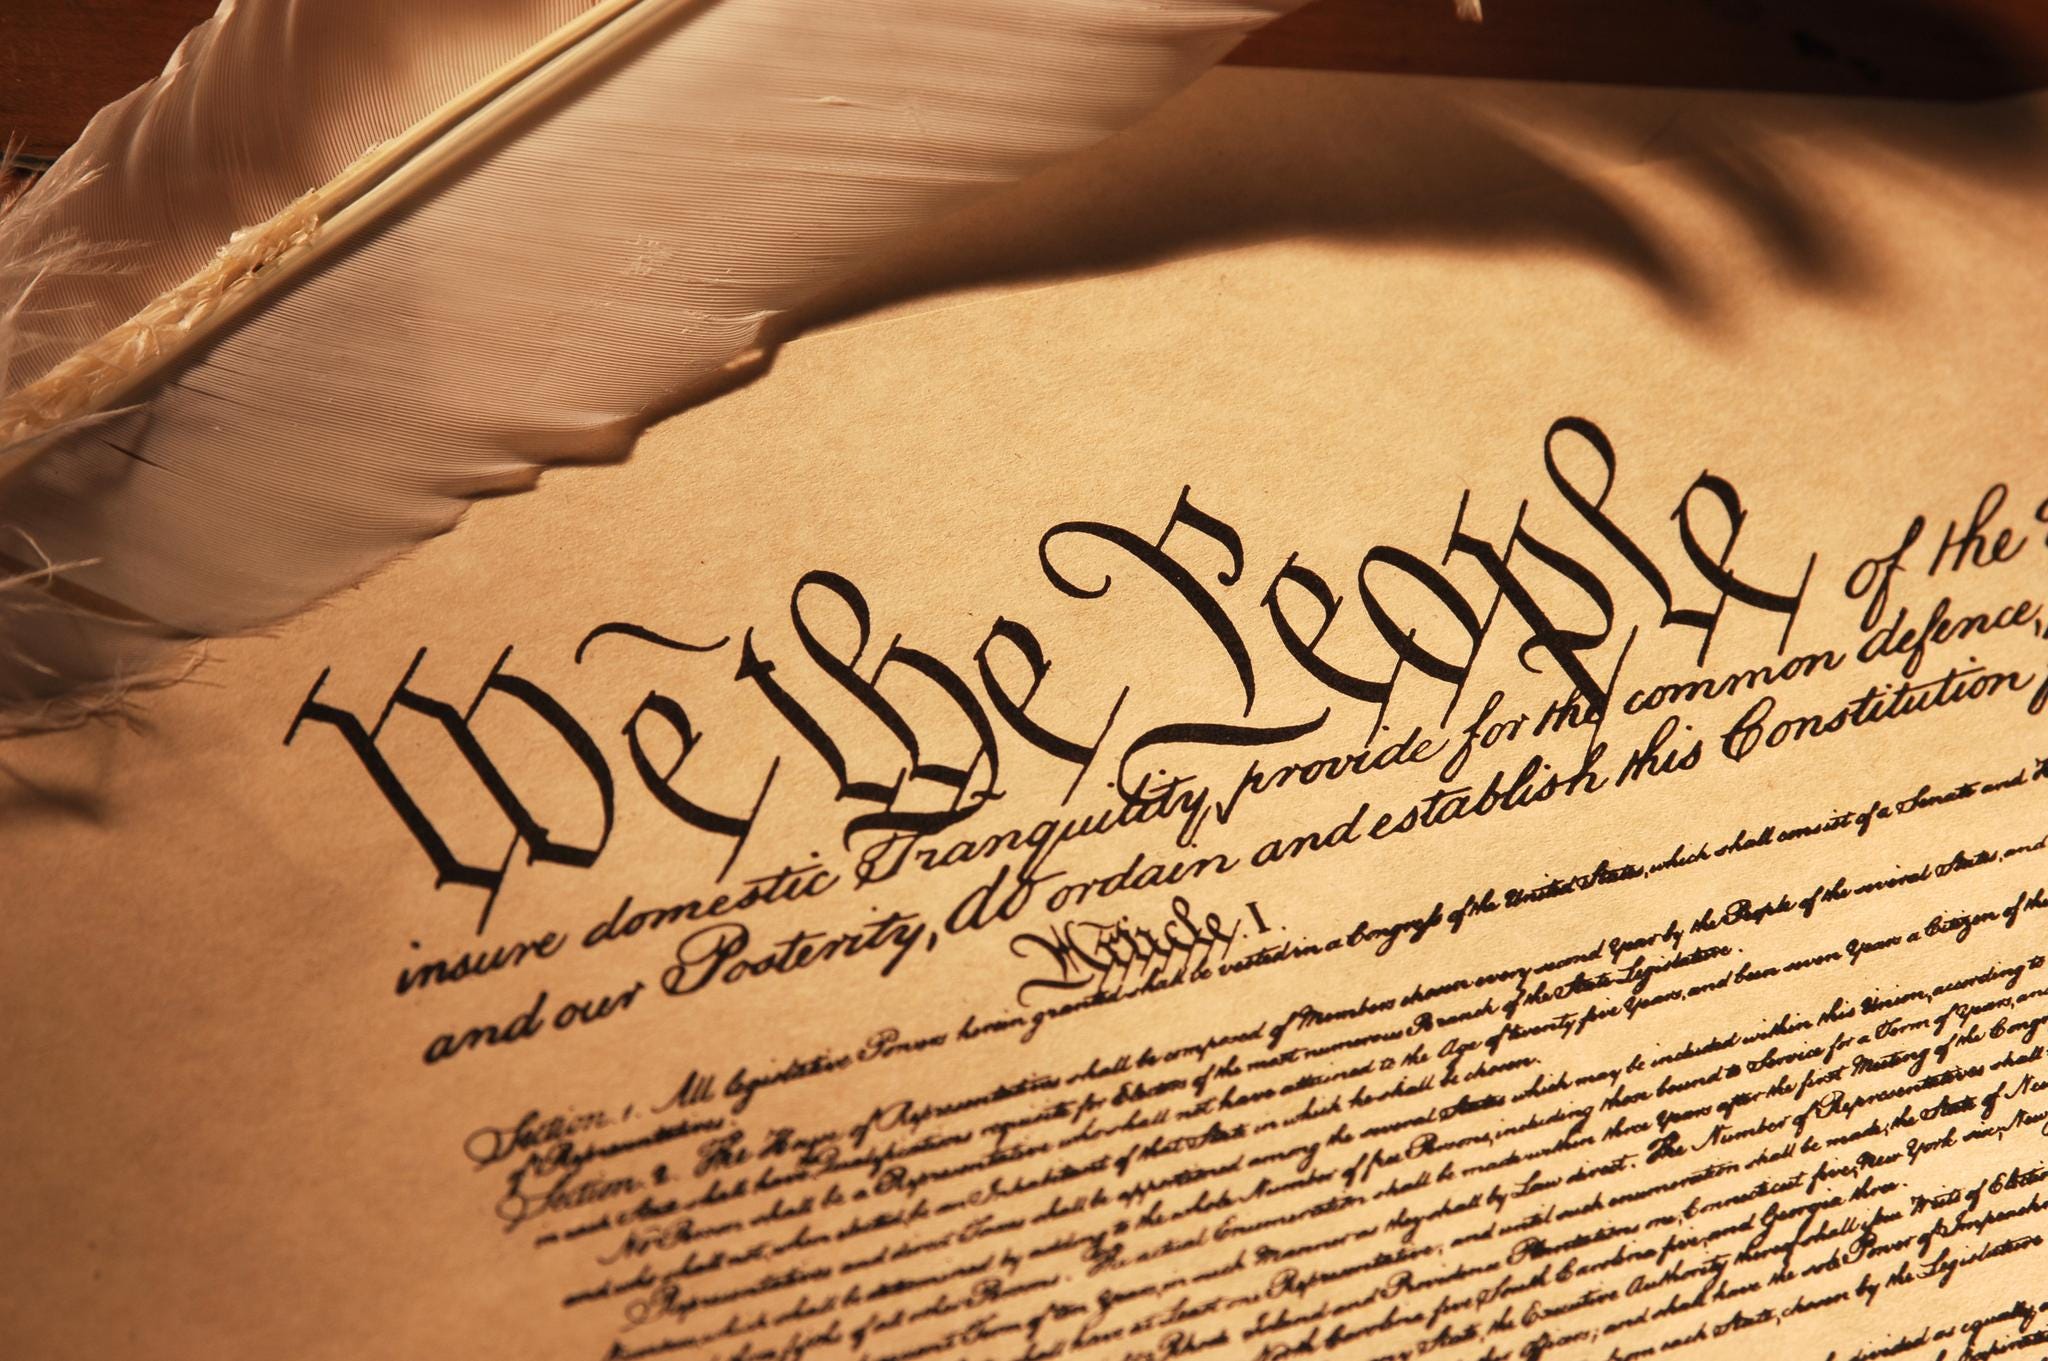 We the People of the
insure domestic Tranquility, provide for the common defence,
and our Posterity, do ordain and establish this Constitution
Article. I.
Section. 1. All legislative Powers herein granted shall be vested in a Congress of the United States, which shall consist of a Senate and
of Representatives.
Section. 2. The House of Representatives shall be composed of Members chosen every second Year by the People of the several States, and
in each State shall have Qualifications requisite for Electors of the most numerous Branch of the State Legislature.
No Person shall be a Representative who shall not have attained to the Age of twenty five Years, and been seven Years a Citizen of the
and who shall not, when elected, be an Inhabitant of that State in which he shall be chosen.
Representatives and direct Taxes shall be apportioned among the several States which may be included within this Union, according to
Numbers, which shall be determined by adding to the whole Number of free Persons, including those bound to Service for a Term of Years, and
of all other Persons. The actual Enumeration shall be made within three Years after the first Meeting of the
Term of ten Years, in such Manner as they shall by Law direct. The Number of Representatives shall
shall have at Least one Representative; and until such enumeration shall be made, the State of New
Rhode Island and Providence Plantations one, Connecticut five, New York six, New
North Carolina five, South Carolina five, and Georgia three.
State, the Executive Authority thereof shall issue Writs of Election
other Officers; and shall have the sole Power of
from each State, chosen by the Legislature
divided as equally